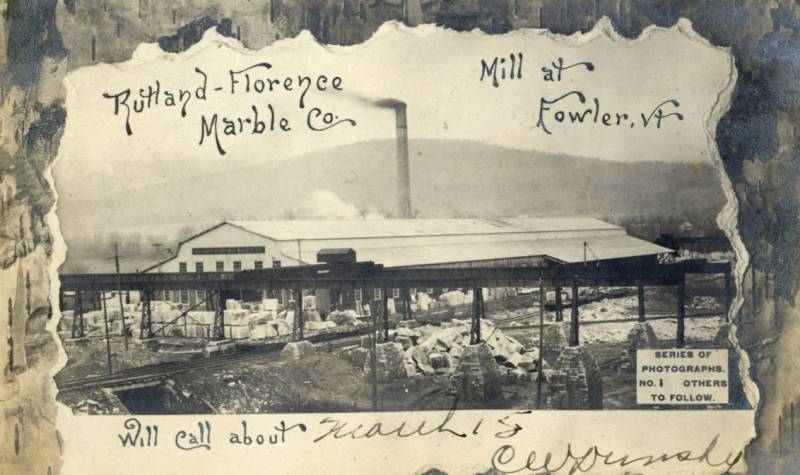 Rutland-Florence
Marble Co.
Mill at
Fowler, Vt
SERIES OF
PHOTOGRAPHS.
NO. 1 OTHERS
TO FOLLOW.
Will call about March 15